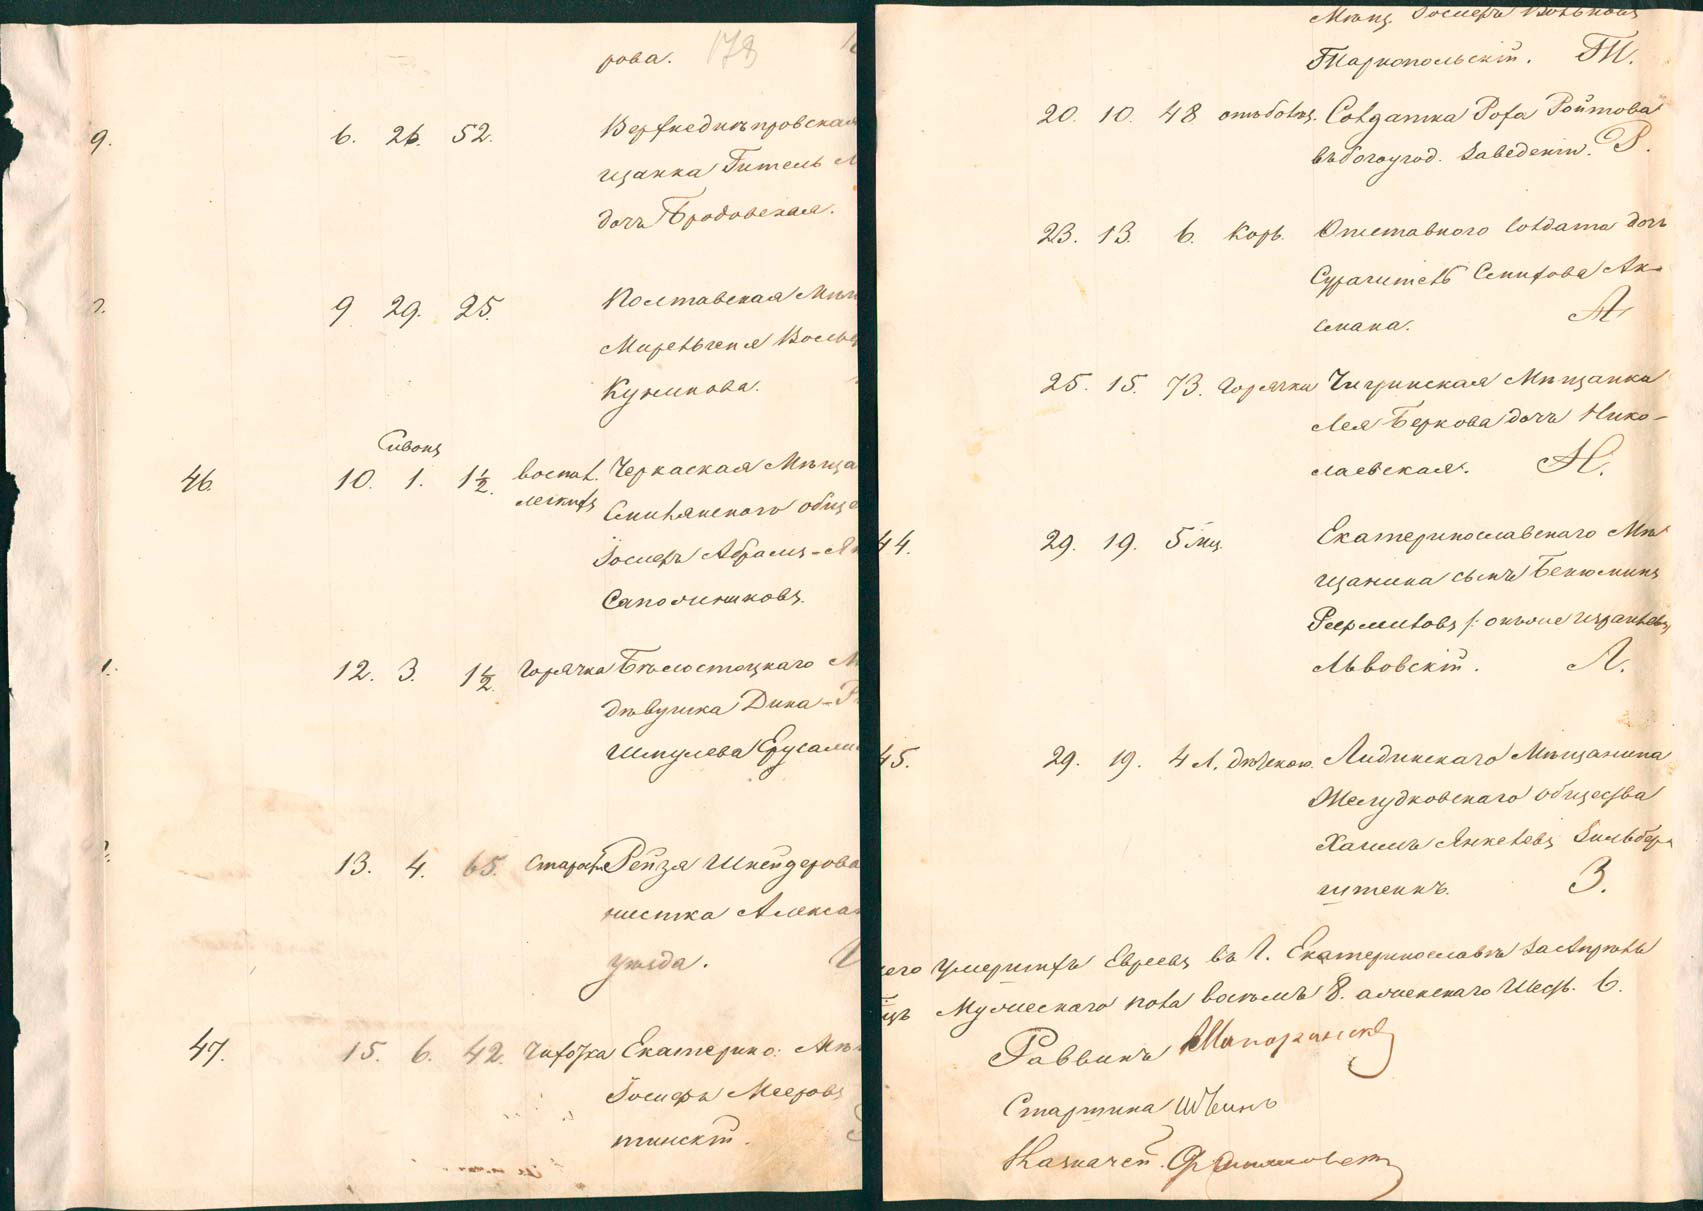 рова. 178
9. 6. 26. 52. Верхнеднѣпровская
щанка Гитель
дочь Бродовская.
9 29. 25. Полтавская Мѣщ
Кужикова.
Сивонъ
46. 10. 1. 1½. воспал. Черкаская Мѣща
легкихъ Смилянскаго обще
Іосифъ Абрамъ-
Сапожниковъ.
1. 12. 3. 1½. горячка Бѣлостоцкаго М
дѣвушка Дина-Р
Шмулева Ерусалим
13. 4. 65. старость Рейзя Шнейдерова
нистка Алексан
уѣзда.
47. 15. 6. 42. чахотка Екатерино: Мѣщ
Іосифъ Мееровъ
тинскій.
Мѣщ. Іосифъ Вольковъ
Тарнопольскій. Т.
20. 10. 48 Солдатка Роха Ройтова
въ богоугод. заведеніи. Р.
23. 13. 6. Корь. Отставного солдата дочь
Ак-
смана. А
25. 15. 73. горячки Чигринская Мѣщанка
Лея Беркова дочь Нико-
лаевская. Н.
44. 29. 19. 5 мѣц. Екатеринославскаго Мѣ
щанина сынъ Бенюминъ
Львовскій. Л.
45. 29. 19. 4 л. Лидинскаго Мѣщанина
Желудковскаго общества
Хаимъ Янкелевъ Зильбер
штейнъ. З.
его умершихъ Евреевъ въ г. Екатеринославѣ за Апрѣль
цъ Мужескаго пола восемь 8. а женскаго шесть. 6.
Раввинъ
Старшина
Казначей.